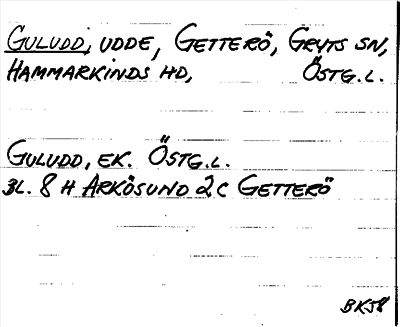 GULUDD, UDDE, GETTERÖ, GRYTS SN,
HAMMARKINDS HD, ÖSTG.L.
GULUDD, EK. ÖSTG.L.
BL. 8 H ARKÖSUND 2 C GETTERÖ
BK58